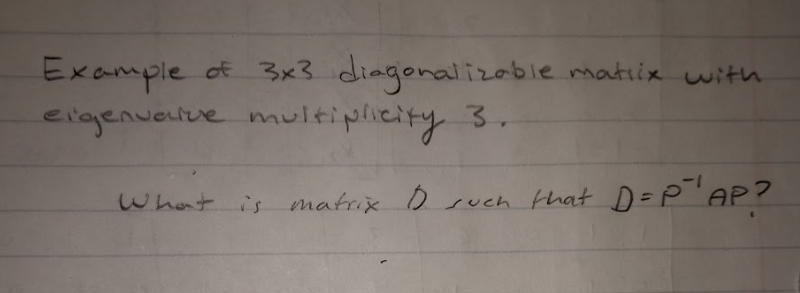 Example of 3x3 diagonalizable matrix with
eigenvalue multiplicity 3.
What is matrix D such that D = P⁻¹ AP?